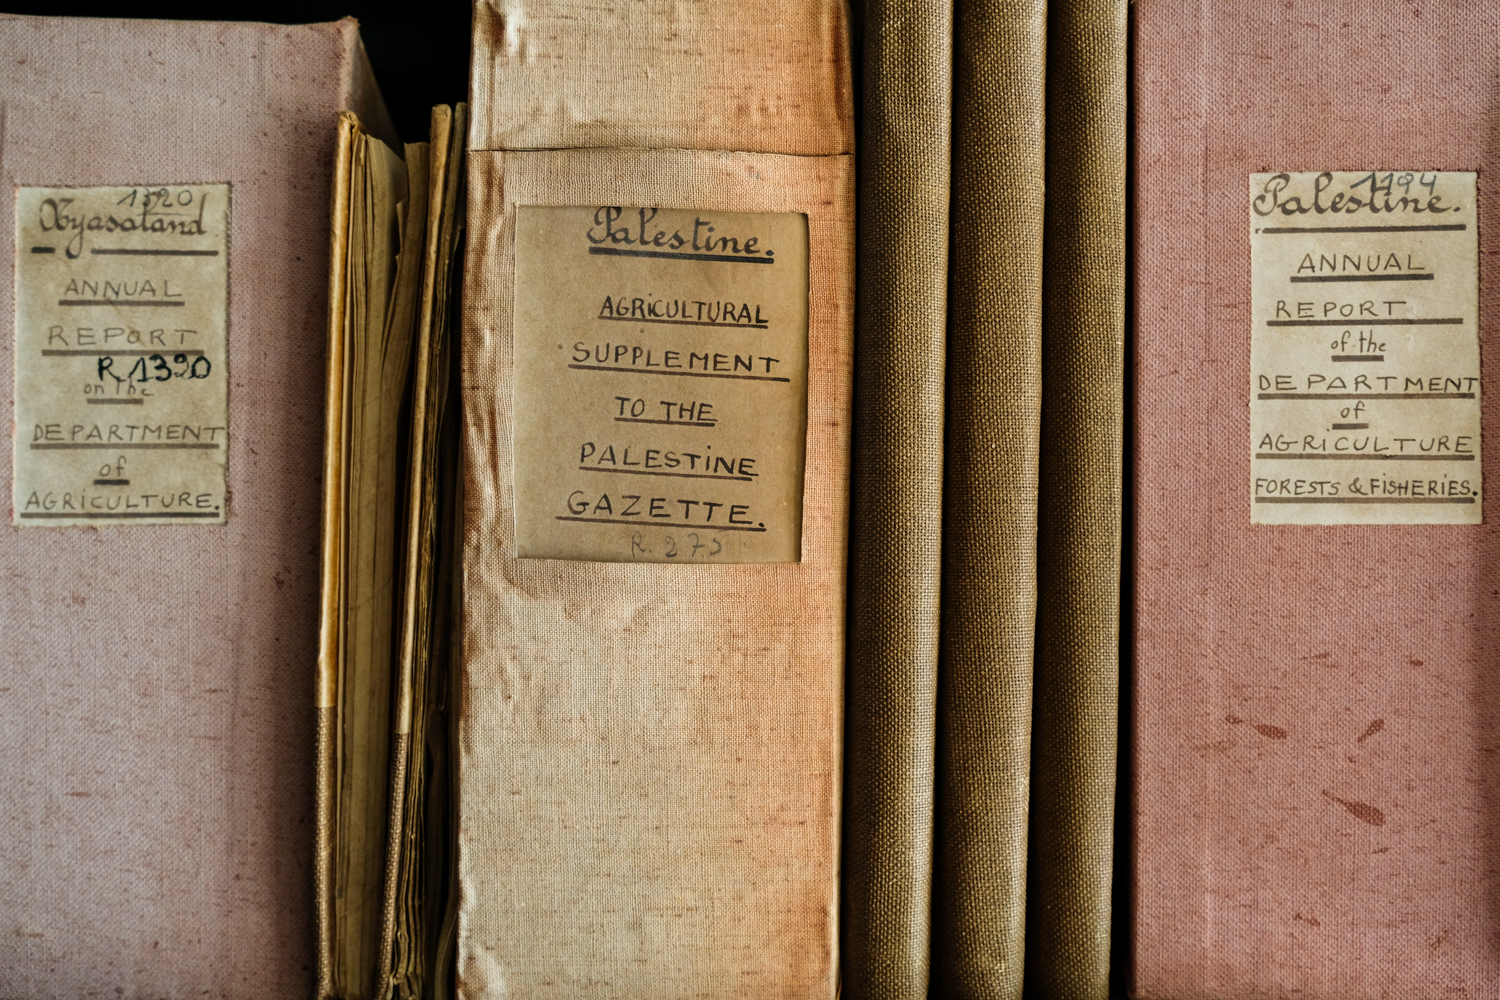 1390
Nyasaland.
ANNUAL
REPORT
R 1390
on the
DEPARTMENT
of
AGRICULTURE.
Palestine.
AGRICULTURAL
SUPPLEMENT
TO THE
PALESTINE
GAZETTE.
R. 273
1194
Palestine.
ANNUAL
REPORT
of the
DEPARTMENT
of
AGRICULTURE
FORESTS & FISHERIES.